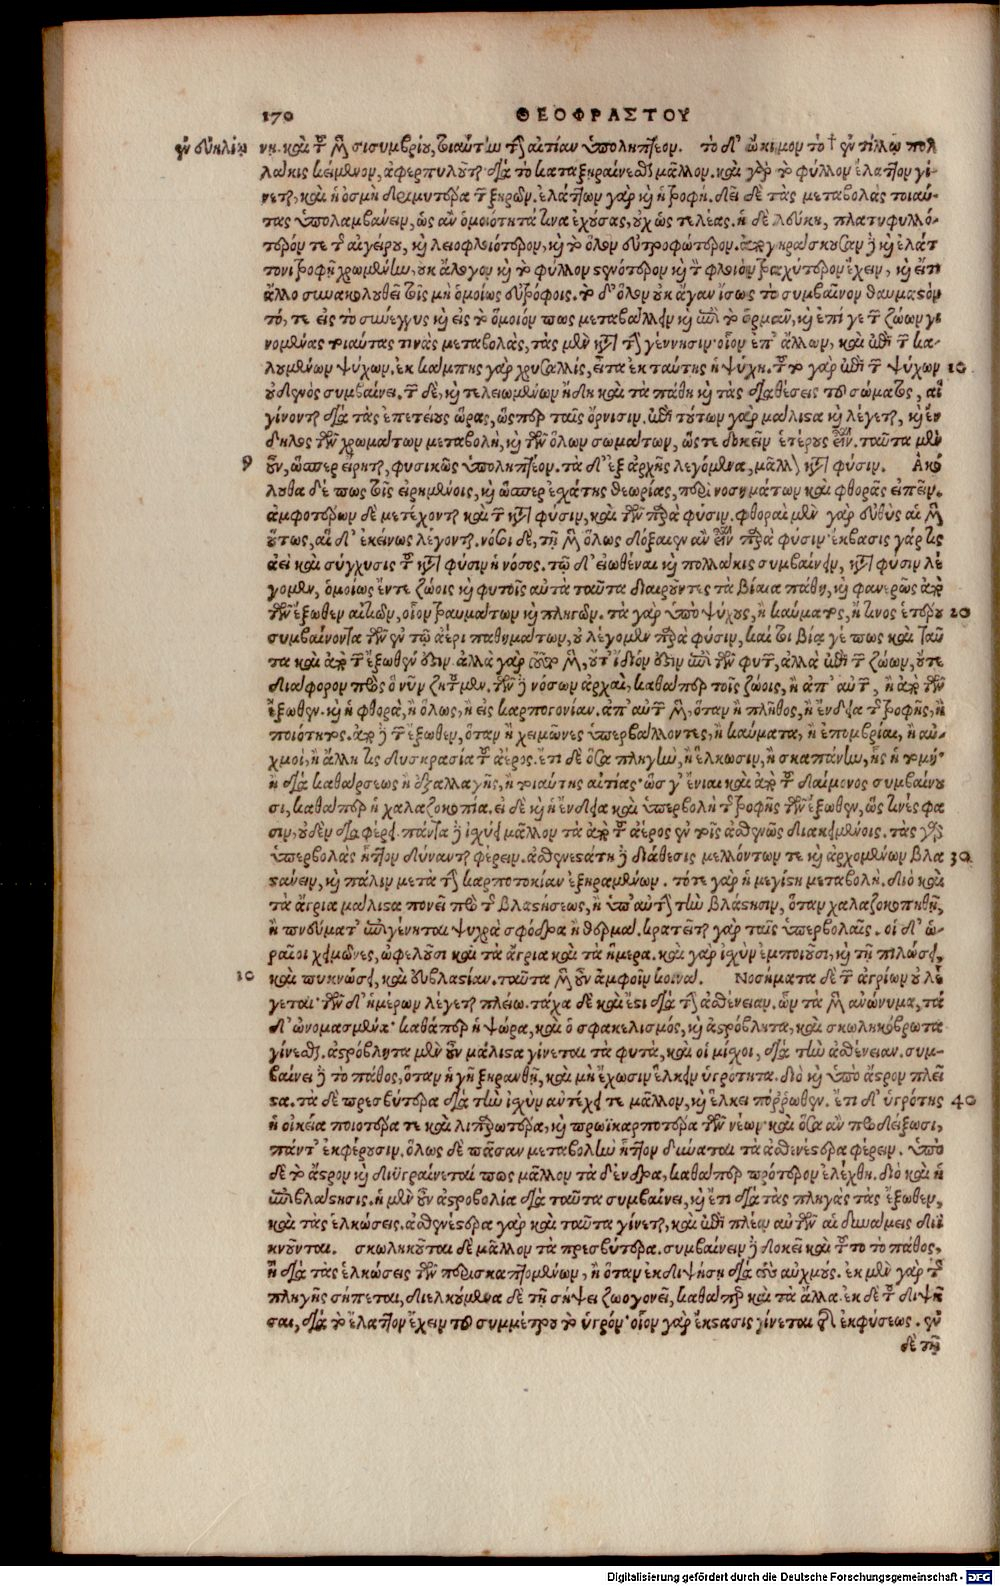 170 ΘΕΟΦΡΑΣΤΟΥ
νη. καὶ τοῦ μὲν σισυμβρίου, τοιαύτην τὴν αἰτίαν ὑποληπτέον. τὸ δ' ὤκιμον τὸ † ἐν πολ
λάκις κείμενον, ἀφερπυλοῦται διὰ τὸ καταξηραίνεσθαι μᾶλλον. καὶ γὰρ τὸ φύλλον ἔλαττον γί
νεται, καὶ ἡ ὀσμὴ δριμυτέρα τῶν ξηρῶν. ἐλάττων γὰρ καὶ ἡ τροφή. δεῖ δὲ τὰς μεταβολὰς τοιαύ-
τας ὑπολαμβάνειν, ὡς ἂν ὁμοιότητά τινα ἐχούσας, οὐχ ὡς τελέας. ἡ δὲ λεύκη, πλατυφυλλό-
τερόν τε τῆς αἰγείρου, καὶ λειοφλοιότερον, καὶ τὸ ὅλον εὐτροφώτερον. ἀπογηράσκουσαν δὲ καὶ ἐλάτ
τονι τροφῇ χρωμένην, οὐκ ἄλογον καὶ τὸ φύλλον στενότερον καὶ τὸν φλοιὸν τραχύτερον ἔχειν, καὶ εἴ τι
ἄλλο συνακολουθεῖ τοῖς μὴ ὁμοίως εὐτρόφοις. τὸ δ' ὅλον οὐκ ἄγαν ἴσως τὸ συμβαῖνον θαυμαστὸν
τό, τε εἰς τὸ σύνεγγυς καὶ εἰς τὸ ὅμοιόν πως μεταβάλλειν καὶ ἐπὶ τὸ ὁρμᾶν, καὶ ἐπί γε τῶν ζώων γι
νομένας τοιαύτας τινὰς μεταβολάς, τὰς μὲν κατὰ τὴν γέννησιν· οἷον ἐπ' ἄλλων, καὶ ἐπὶ τῶν κα-
λουμένων ψύχων, ἐκ κάμπης γὰρ χρυσαλλίς, εἶτα ἐκ ταύτης ἡ ψύχη. τοῦτο γὰρ ἐπὶ τῶν ψύχων 10
οὐδενὸς συμβαίνει. τῶν δὲ, καὶ τελειωμένων ἤδη κατὰ τὰ πάθη καὶ τὰς διαθέσεις τοῦ σώματος, αἳ
γίνονται διὰ τὰς ἐπετείους ὥρας, ὥσπερ ταῖς ὄρνισιν. ἐπὶ τούτων γὰρ μάλιστα καὶ λέγεται, καὶ ἔν
δηλος τῶν χρωμάτων μεταβολή, καὶ τῶν ὅλων σωμάτων, ὥστε δοκεῖν ἑτέρους εἶναι. ταῦτα μὲν
9 οὖν, ὥσπερ εἴρηται, φυσικῶς ὑποληπτέον. τὰ δ' ἐξ ἀρχῆς λεγόμενα, μᾶλλον κατὰ φύσιν. Ἀκό
λουθα δέ πως τοῖς εἰρημένοις, καὶ ὥσπερ ἐσχάτης θεωρίας, περὶ νοσημάτων καὶ φθορᾶς εἰπεῖν.
ἀμφοτέρων δὲ μετέχονται καὶ τῶν κατὰ φύσιν, καὶ τῶν παρὰ φύσιν. φθοραὶ μὲν γὰρ εὐθὺς αἱ μὲν
οὕτως, αἱ δ' ἐκείνως λέγονται. νόσοι δὲ, τῇ μὲν ὅλως δόξαιεν ἂν εἶναι παρὰ φύσιν· ἔκβασις γάρ τις
ἀεὶ καὶ σύγχυσις τοῦ κατὰ φύσιν ἡ νόσος. τῷ δ' εἰωθέναι καὶ πολλάκις συμβαίνειν, κατὰ φύσιν λέ
γομεν, ὁμοίως ἔν τε ζώοις καὶ φυτοῖς αὐτὰ ταῦτα διαιροῦντες τὰ βίαια πάθη, καὶ φανερῶς ἀπὸ
τῶν ἔξωθεν αἰκιῶν, οἷον τραυμάτων καὶ πληγῶν. τὰ γὰρ ὑπὸ ψύχους, ἢ καύματος, ἤ τινος ἑτέρου 20
συμβαίνοντα τῶν ἐν τῷ ἀέρι παθημάτων, οὐ λέγομεν παρὰ φύσιν, καίτοι βίᾳ γέ πως καὶ ταῦ
τα καὶ ἀπὸ τῶν ἔξωθέν ἐστιν. ἀλλὰ γὰρ τοῦτο μὲν, οὔτ' ἴδιόν ἐστιν ἐπὶ τῶν φυτῶν, ἀλλὰ ἐπὶ τῶν ζώων, οὔτε
διάφορον πρὸς ὃ νῦν ζητοῦμεν. τῶν δὲ νόσων ἀρχαὶ, καθάπερ τοῖς ζώοις, ἢ ἀπ' αὐτῶν, ἢ ἀπὸ τῶν
ἔξωθεν. καὶ ἡ φθορὰ, ἢ ὅλως, ἢ εἰς καρπογονίαν. ἀπ' αὐτῶν μὲν, ὅταν ἢ πλῆθος, ἢ ἔνδεια τῆς τροφῆς, ἢ
ποιότητος. ἀπὸ δὲ τῶν ἔξωθεν, ὅταν ἢ χειμῶνες ὑπερβάλλοντες, ἢ καύματα, ἢ ἐπομβρίαι, ἢ αὐ-
χμοί, ἢ ἄλλη τις δυσκρασία τοῦ ἀέρος. ἔτι δὲ ὅσα πληγὴν, ἢ ἕλκωσιν, ἢ σκαπάνην, ἧς ἡ τομή·
ἢ διὰ καθάρσεως ἢ ἐξαλλαγῆς, ἢ τοιαύτης αἰτίας· ὥς γ' ἔνιαι καὶ ἀπὸ τοῦ δαίμονος συμβαίνου
σι, καθάπερ ἡ χαλαζοκοπία. εἰ δὲ καὶ ἡ ἔνδεια καὶ ὑπερβολὴ τῆς τροφῆς τῶν ἔξωθεν, ὥς τινές φα
σιν, οὐδὲν διαφέρει. πάντα δὲ ἰσχύει μᾶλλον τὰ ἀπὸ τοῦ ἀέρος ἐν τοῖς ἀσθενῶς διακειμένοις. τὰς γὰρ
ὑπερβολὰς ἧττον δύναται φέρειν. ἀσθενεστάτη δὲ διάθεσις μελλόντων τε καὶ ἀρχομένων βλα 30
στάνειν, καὶ πάλιν μετὰ τὴν καρποτοκίαν ἐξηραμένων. τότε γὰρ ἡ μεγίστη μεταβολή. διὸ καὶ
τὰ ἄγρια μάλιστα πονεῖ πρὸ τῆς βλαστήσεως, ἢ ὑπ' αὐτὴν τὴν βλάστησιν, ὅταν χαλαζοκοπηθῇ,
ἢ πνεύματ' ἐπιγένηται ψυχρὰ σφόδρα ἢ θερμά. κρατεῖται γὰρ ταῖς ὑπερβολαῖς. οἱ δ' ὡ-
ραῖοι χειμῶνες, ὠφελοῦσι καὶ τὰ ἄγρια καὶ τὰ ἥμερα. καὶ γὰρ ἰσχὺν ἐμποιοῦσι, καὶ τῇ πιλώσει,
10 καὶ πυκνώσει, καὶ εὐβλαστίαν. ταῦτα μὲν οὖν ἀμφοῖν κοινά. Νοσήματα δὲ τῶν ἀγρίων οὐ λέ
γεται· τῶν δ' ἡμέρων λέγεται πλείω. τάχα δὲ καὶ ἔστι διὰ τὴν ἀσθένειαν. ὧν τὰ μὲν ἀνώνυμα, τὰ
δ' ὠνομασμένα· καθάπερ ἡ ψώρα, καὶ ὁ σφακελισμός, καὶ ἀστρόβλητα, καὶ σκωληκόβρωτα
γίνεσθαι. ἀστρόβλητα μὲν οὖν μάλιστα γίνεται τὰ φυτά, καὶ οἱ μίσχοι, διὰ τὴν ἀσθένειαν. συμ-
βαίνει δὲ τὸ πάθος, ὅταν ἡ γῆ ξηρανθῇ, καὶ μὴ ἔχωσιν ἕλκειν ὑγρότητα. διὸ καὶ ὑπὸ ἄστρον πλεῖ
στα. τὰ δὲ πρεσβύτερα διὰ τὴν ἰσχὺν ἀντέχει τε μᾶλλον, καὶ ἕλκει πόρρωθεν. ἔτι δ' ὑγρότης 40
ἡ οἰκεία ποιοτέρα τε καὶ λιπαρωτέρα, καὶ πρωϊκαρποτέρα τῶν νέων· καὶ ὅσα ἂν προδείξωσι,
πάντ' ἐκφέρουσιν. ὅλως δὲ πᾶσαν μεταβολὴν ἧττον δύναται τὰ ἀσθενέστερα φέρειν. ὑπὸ
δὲ τὸ ἄστρον καὶ διϋγραίνεταί πως μᾶλλον τὰ δένδρα, καθάπερ πρότερον ἐλέχθη. διὸ καὶ ἡ
ἐπιβλάστησις. ἡ μὲν οὖν ἀστροβολία διὰ ταῦτα συμβαίνει, καὶ ἔτι διὰ τὰς πληγὰς τὰς ἔξωθεν,
καὶ τὰς ἑλκώσεις. ἀσθενέστερα γὰρ καὶ ταῦτα γίνεται, καὶ ἐπὶ πλέον αὐτῶν αἱ δυνάμεις διϊ
κνοῦνται. σκωληκοῦται δὲ μᾶλλον τὰ πρεσβύτερα. συμβαίνειν δὲ δοκεῖ καὶ τοῦτο τὸ πάθος,
ἢ διὰ τὰς ἑλκώσεις τῶν περισκαπτομένων, ἢ ὅταν ἐκδιψήσῃ διὰ τοὺς αὐχμούς. ἐκ μὲν γὰρ τῆς
πληγῆς σήπεται, διελκούμενα δὲ τῇ σήψει ζωογονεῖ, καθάπερ καὶ τὰ ἄλλα. ἐκ δὲ τοῦ διψῆ
σαι, διὰ τὸ ἔλαττον ἔχειν τοῦ συμμέτρου τὸ ὑγρόν· οἷον γὰρ ἔκστασις γίνεται τῆς ἐκφύσεως. ἐν
δὲ τῇ
Digitalisierung gefördert durch die Deutsche Forschungsgemeinschaft - DFG